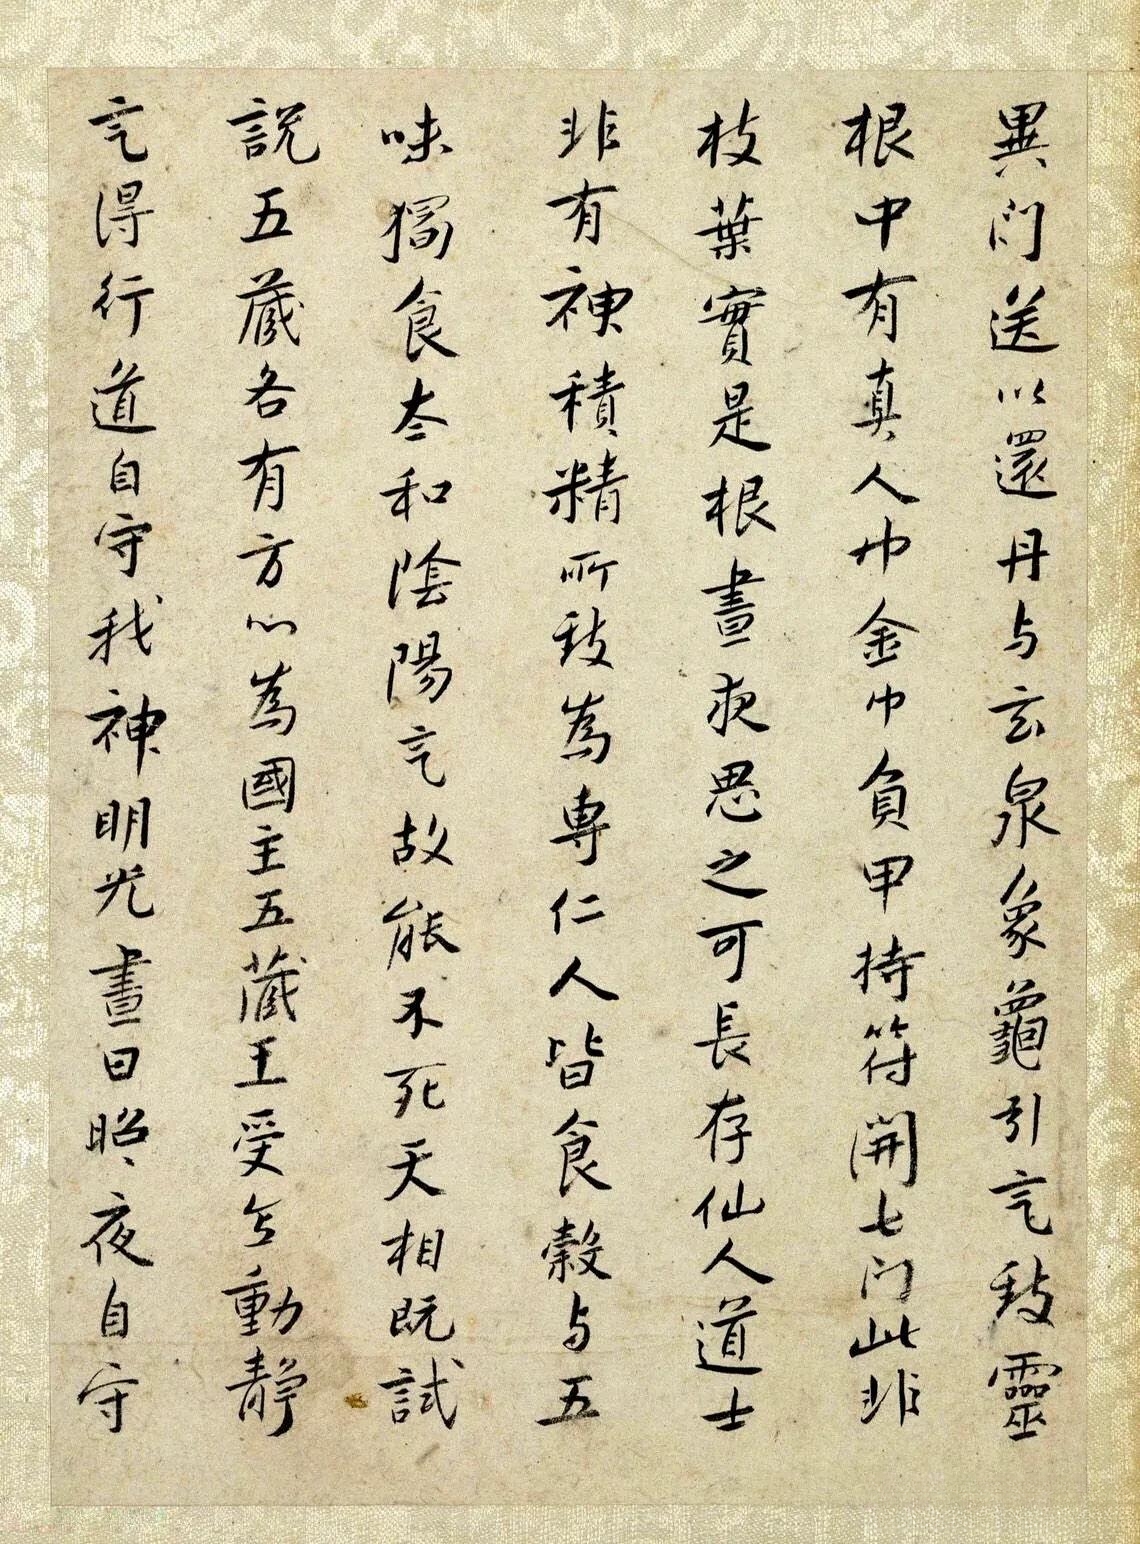 異門送以還丹与玄泉象龜引炁致靈
根中有真人巾金巾負甲持符開七門此非
枝葉實是根晝夜思之可長存仙人道士
非有神積精所致為専仁人皆食穀与五
味獨食太和陰陽炁故能不死天相既試
說五藏各有方心為國主五藏王受意動静
炁得行道自守我神明光晝日昭昭夜自守